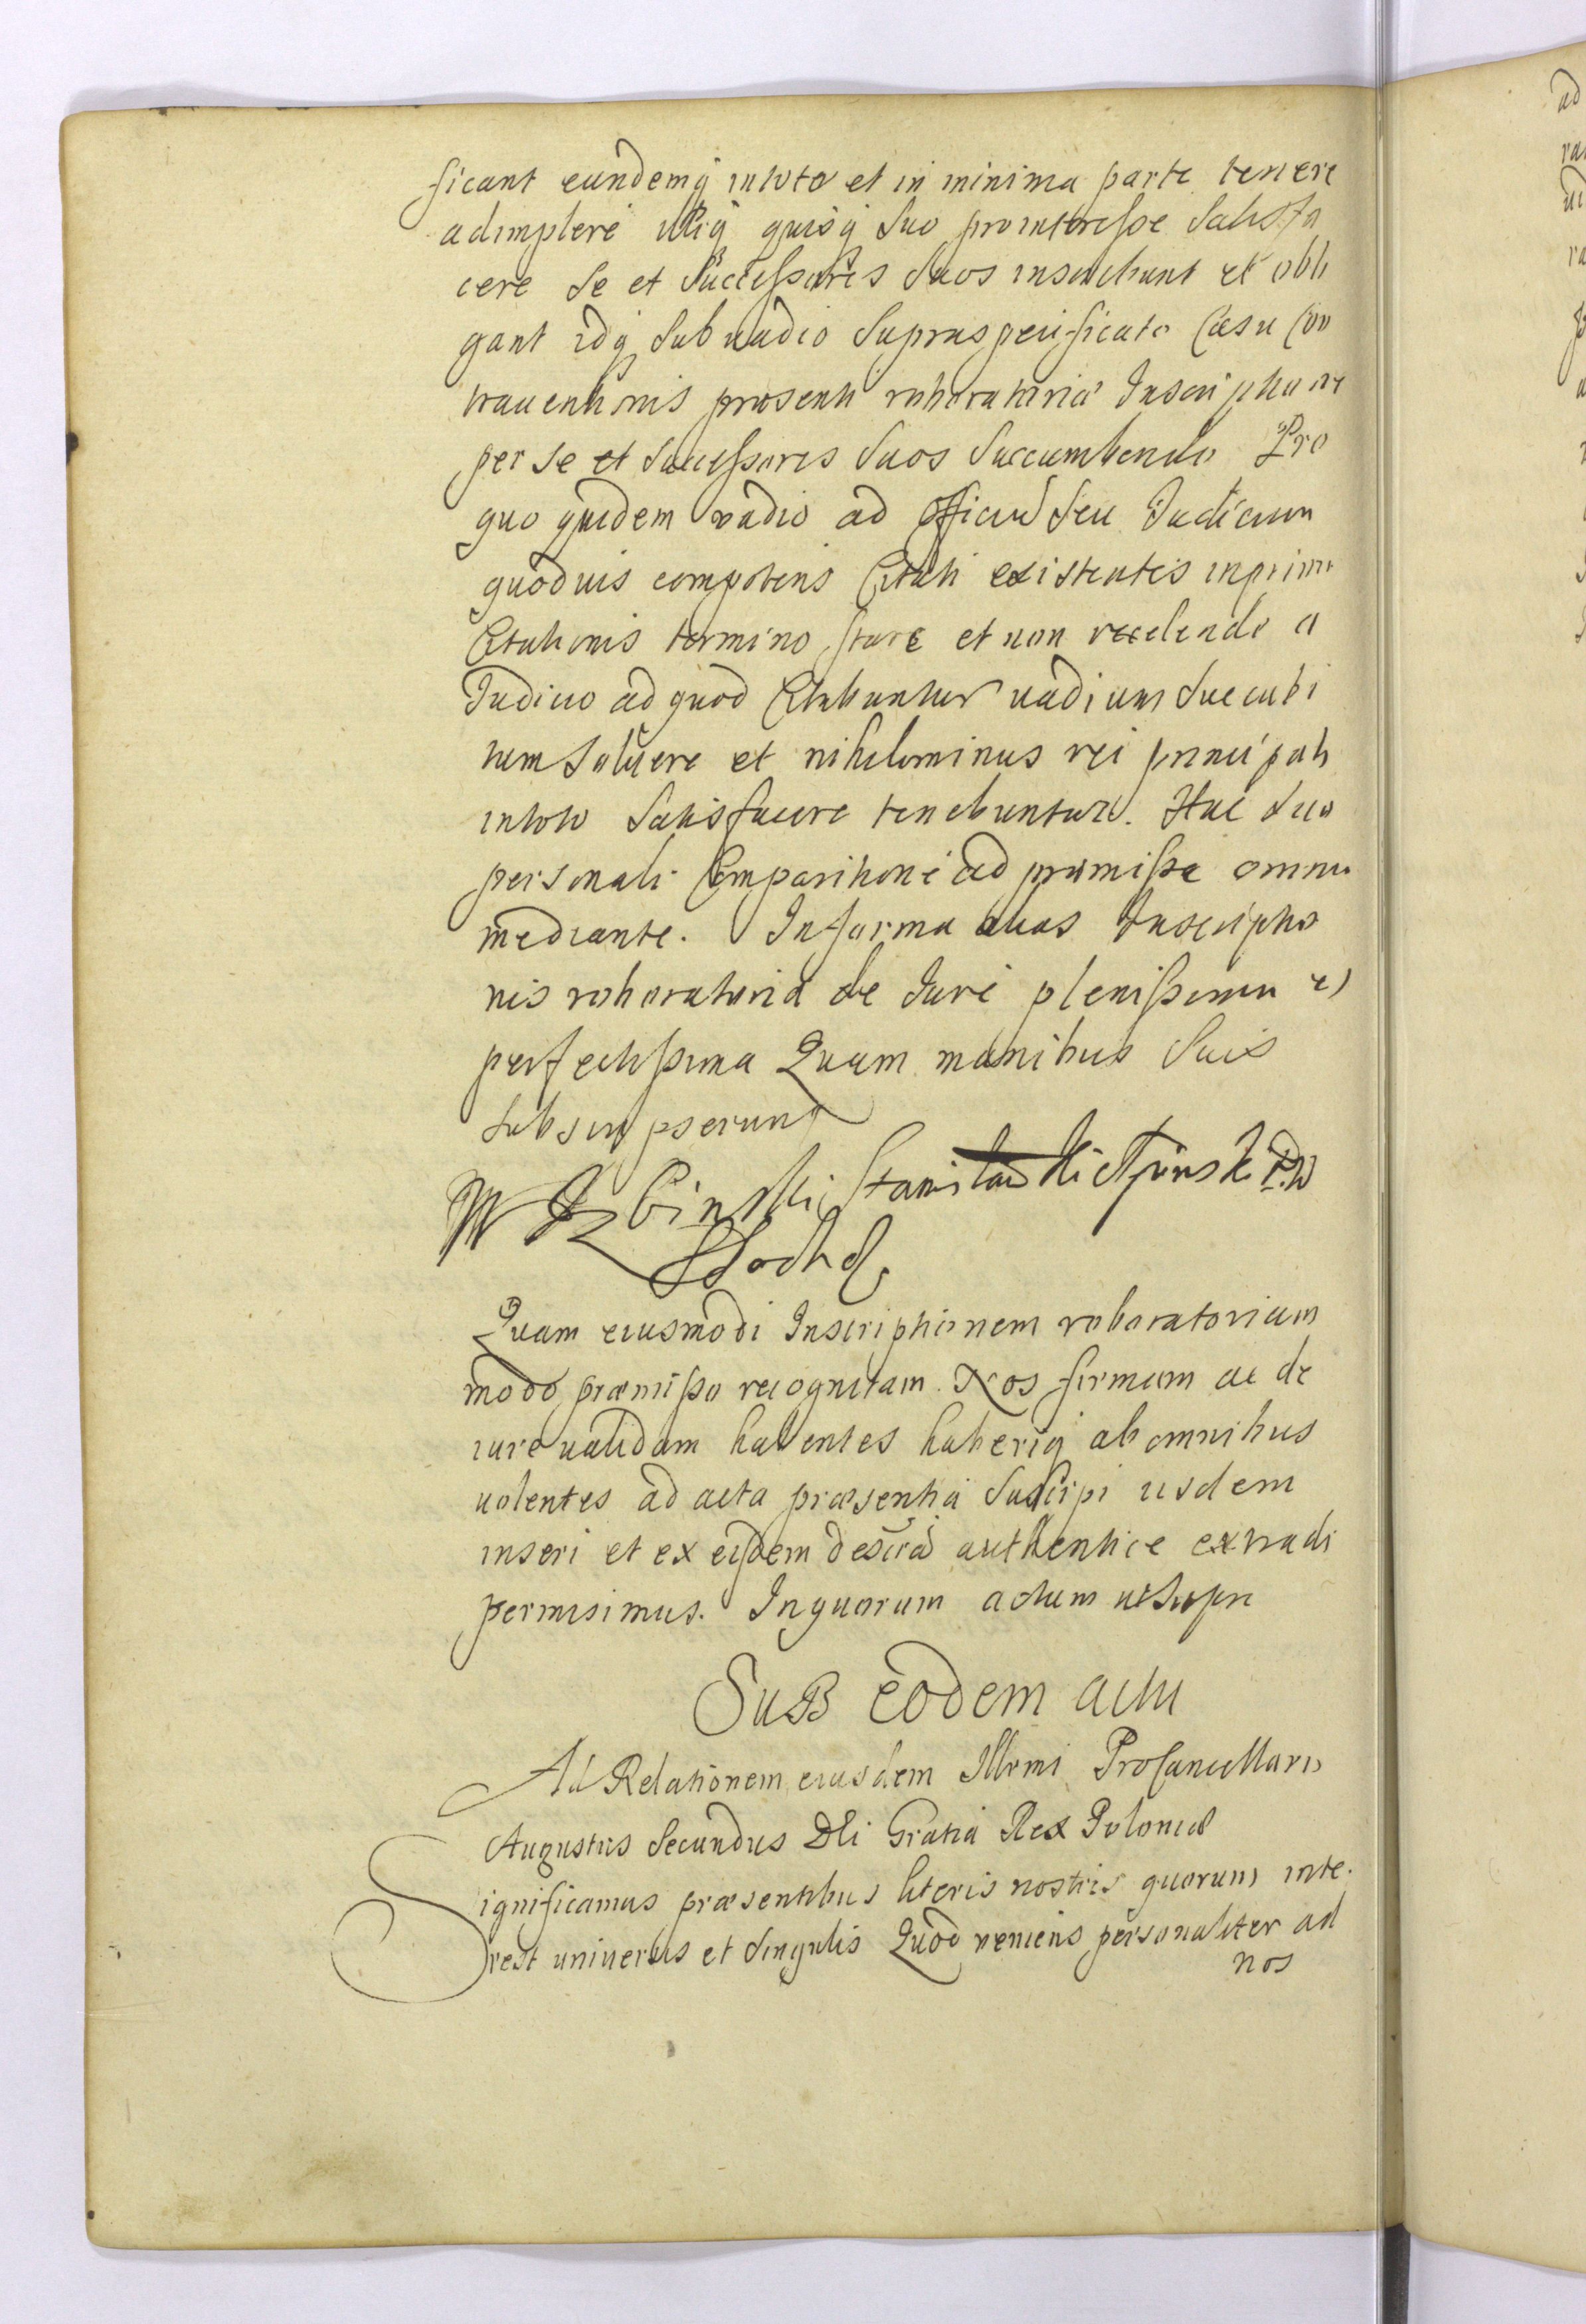 ficant eundemq intoto et in minima parte tenere
adimplere illiq quisq suo prointeresse Satisfa
cere se et Successores suos inscribunt et obli
gant idq sub vadio supraspecificato Casu Con
travenhonis præsenti roboratoriæ Inscriptione
per se et successores suos succumbendo Pro
quo quidem vadio ad Officiũ seu Iudicium
quoduis competens Citati existentes inprimo
Citationis termino stare et non recedendo a
Iudicio ad quod Citabuntur uadium succubi
tum soluere et nihilominus rei principali
intoto satisfacere tenebuntur. Hac sua
personali Comparitione ad præmissa omnia
mediante. Informa alias Inscriptio
nis roboratoria de Iure plenissima et
perfectissima Quam manibus suis
subscripserunt
Stanisław
Quam eiusmodi Inscriptionem roboratoriam
modo præmisso recognitam Nos firmam ac de
iure validam habentes haberiq ab omnibus
uolentes ad acta præsentia suscipi iisdem
inseri et ex eisdem authentice extradi
permisimus. Inquorum actum utsupra
SuB eodem actu
Ad Relationem eiusdem Illrmi ProCancellarii
Augustus Secundus DEi Gratia Rex Poloniæ
Significamus præsentibus literis nostris quorum inte.
rest uniuersis et singulis Quod veniens personaliter ad
nos